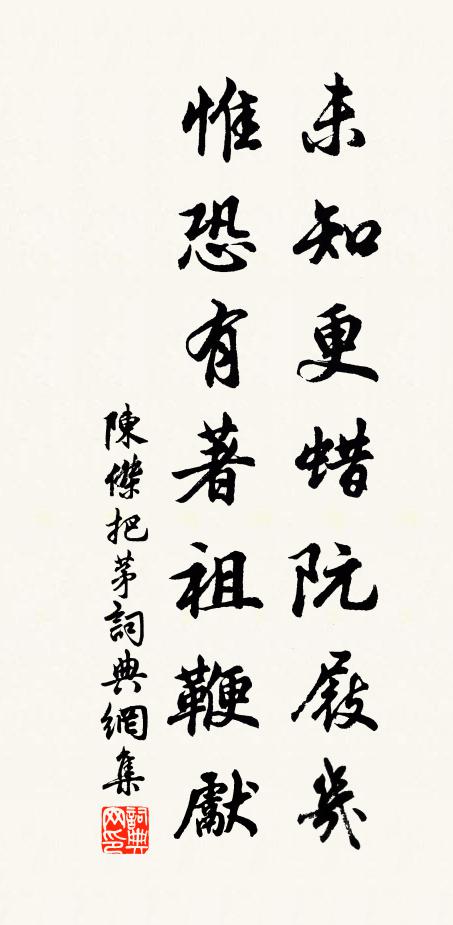 未知更蜡阮屐幾
惟恐有著祖鞭獻
陳傑把茅詞典網集
詞典
网印